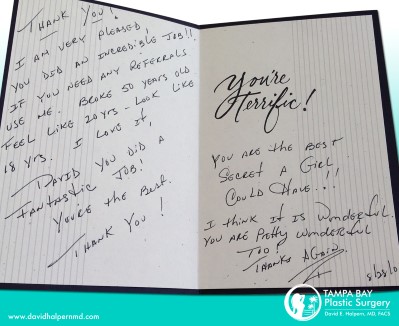 Thank You!
I am very pleased!
You did an incredible job!!
If you need any referrals
use me. Broke 50 years old
feel like 20 yrs - look like
18 yrs. I love it,
David you did a
fantastic job!
You're the best.
Thank You!
You're
terrific!
You are the best
secret a girl
could have!!!
I think it is wonderful.
You are pretty wonderful
too!
Thanks Again,
www.davidhalpernmd.com
TAMPA BAY
Plastic Surgery
David E. Halpern, MD, FACS